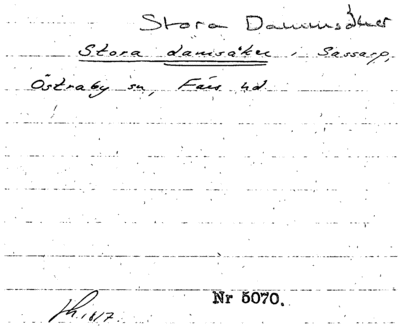 Stora Dammsåker
Stora damsåker, Sassarp,
Östraby sn, Färs hd.
Nr 5070.